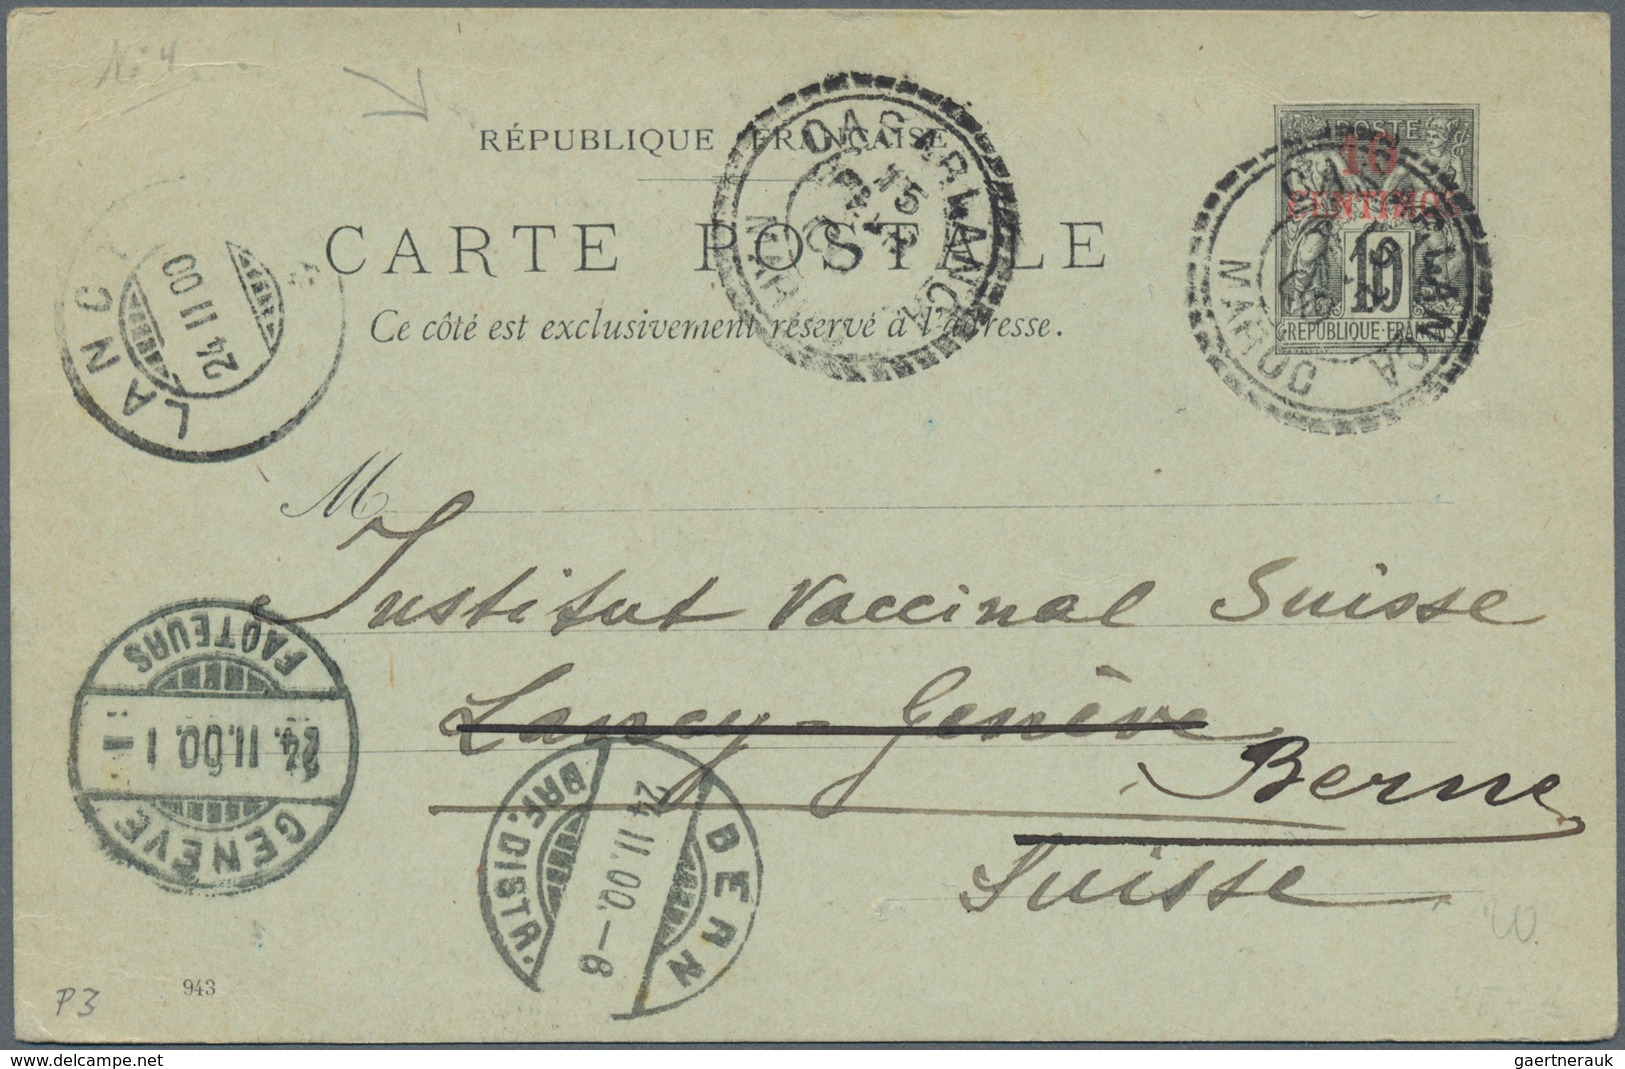 No: 4
RÉPUBLIQUE FRANÇAISE
CARTE POSTALE
Ce côté est exclusivement réservé à l'adresse.
POSTE
10
CENTIMOS
10
REPUBLIQUE·FRANÇAISE
CASABLANCA
15
MAROC
CASABLANCA
MAROC
LANC
24 II 00
M
Institut Vaccinal Suisse
Lancy-Genève
Berne
Suisse
FACTEURS
24. II.00. I
GENÈVE
BERN
24 II.00.–8
BRF. DISTR.
20
P3
943
gaertnerauk